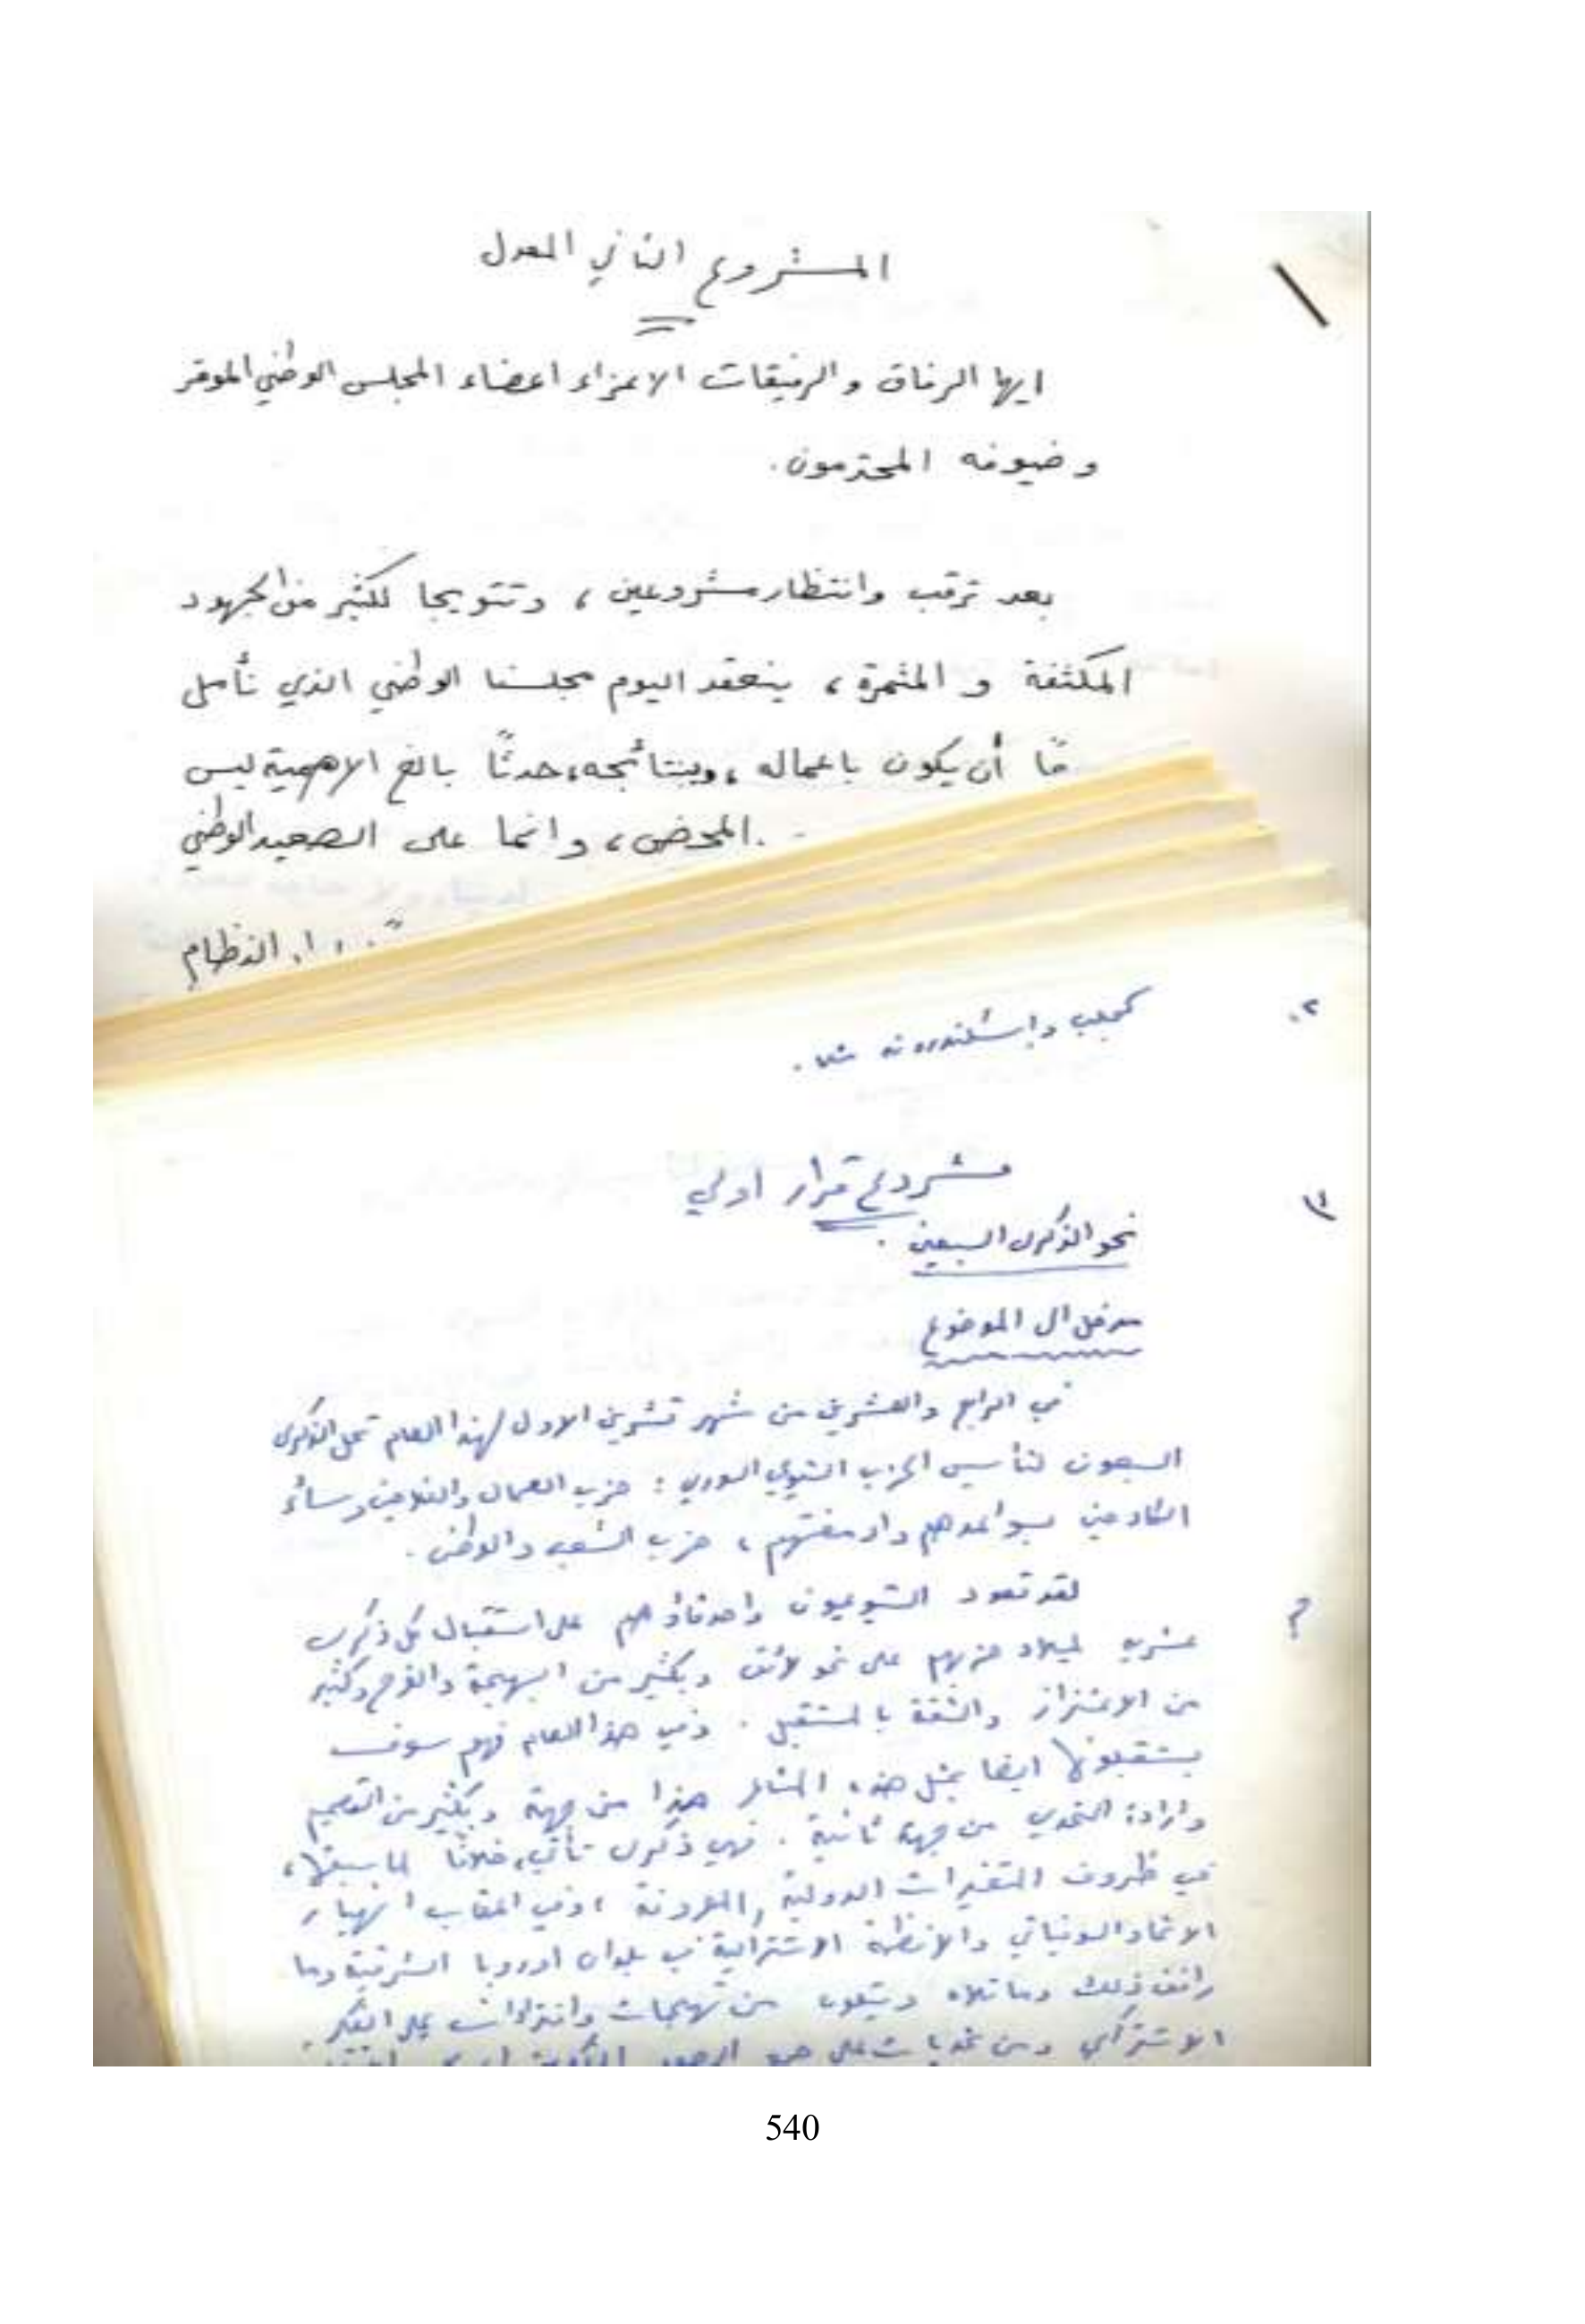 المشروع الثاني المعدل
ايها الرفاق والرفيقات الاعزاء اعضاء المجلس الوطني الموقر
وضيوفه المحترمون.
بعد ترقب وانتظار مشروعين، وتتويجا لكثير من الجهود
المكثفة و المثمرة، ينعقد اليوم مجلسنا الوطني الذي نأمل
أن يكون باعماله، وبنتائجه، حدثًا بالغ الاهمية ليس
المحض، وانما على الصعيد الوطني
النظام
٢.
مشروع قرار اولي
٣
نحو الذكرى السبعين.
مدخل الى الموضوع
في الرابع والعشرين من شهر تشرين الاول لهذا العام تحل الذكرى
السبعون لتأسيس الحزب الشيوعي السوري: حزب العمال والفلاحين وسائر
الكادحين بسواعدهم وادمغتهم، حزب الشعب والوطن.
لقد تعود الشيوعيون واصدقاؤهم على استقبال كل ذكرى
عشرية لميلاد حزبهم على نحو لائق وبكثير من البهجة والفرح وكثير
من الاعتزاز والثقة بالمستقبل. وفي هذا العام فهم سوف
يستقبلونها ايضا بمثل هذه المشاعر هذا من جهة وبكثير من التصميم
وارادة التحدي من جهة ثانية. فهي ذكرى تأتي، خلافًا لما سبقها،
في ظروف المتغيرات الدولية المعروفة، وفي اعقاب انهيار
الاتحاد السوفياتي والانظمة الاشتراكية في بلدان اوروبا الشرقية وما
رافق ذلك وما تلاه ويتلوه من تهجمات وافتراءات على الفكر
الاشتراكي ومن تحديات على
540